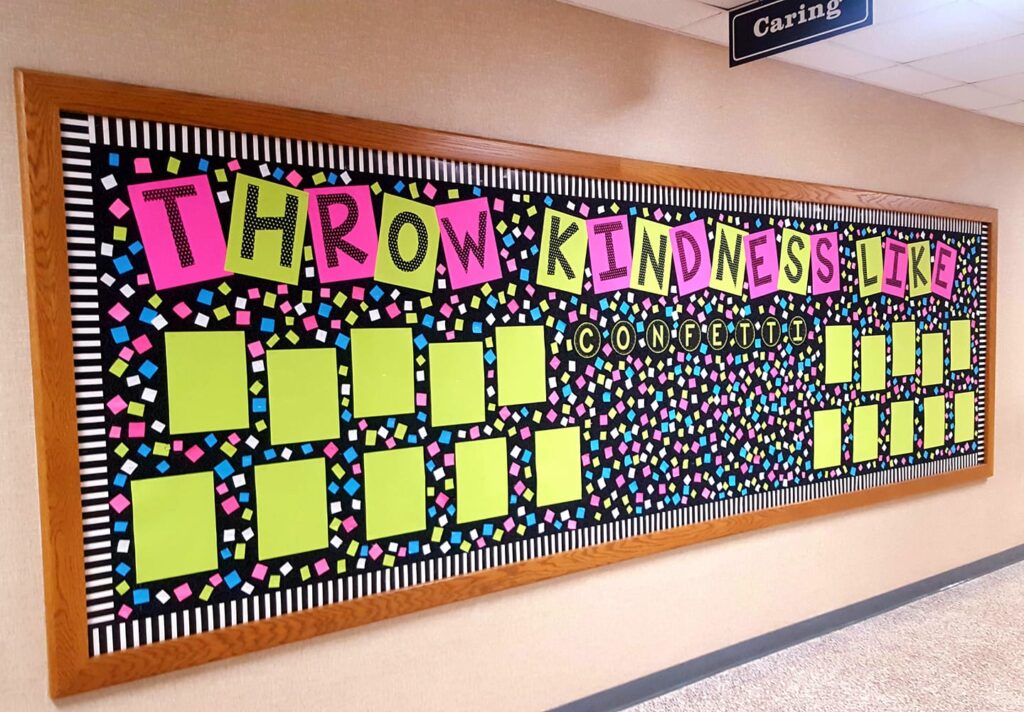 Caring
THROW KINDNESS LIKE
CONFETTI